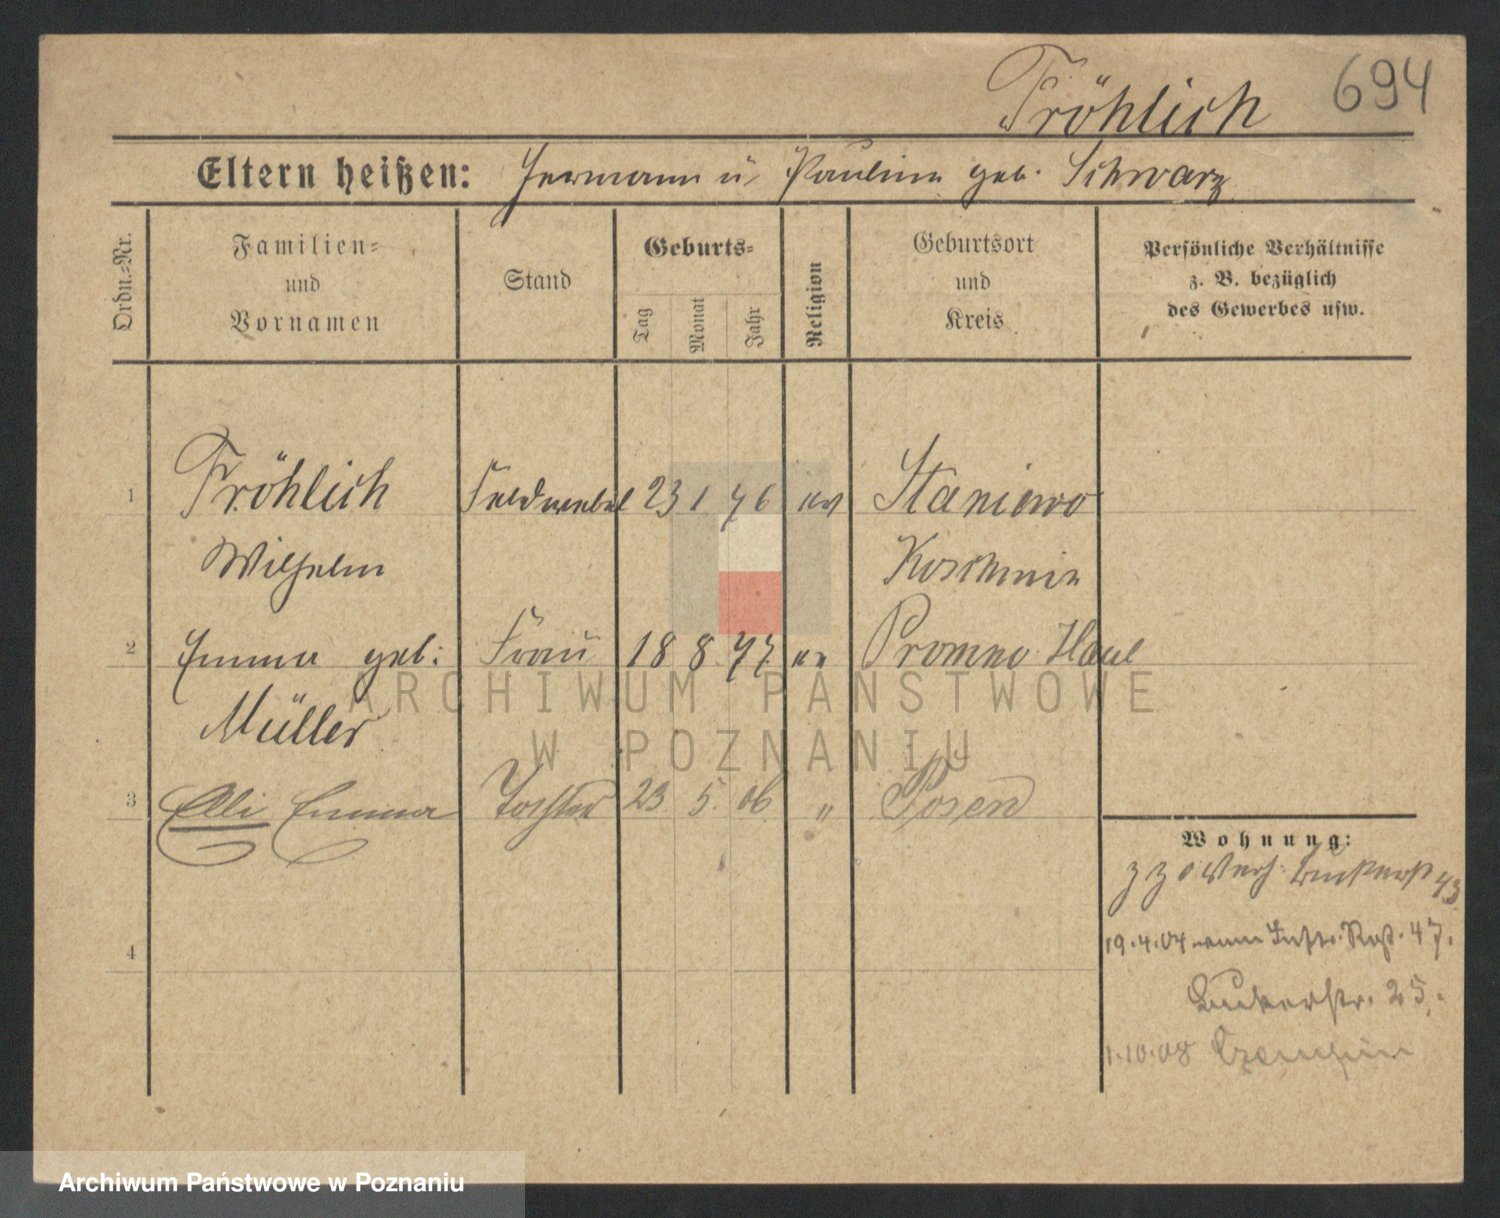 694
Fröhlich
Eltern heißen: Hermann u. Pauline geb. Schwarz
Ordn.-Nr.
Familien-
und
Vornamen
Stand
Geburts-
Tag
Monat
Jahr
Religion
Geburtsort
und
Kreis
Persönliche Verhältnisse
z. B. bezüglich
des Gewerbes usw.
1 Fröhlich Feldwebel 23 1 76 ev Staniewo
Wilhelm Koschmin
2 Emma geb: Frau 18 8 77 ev Promno
Müller
3 Elli Emma Tochter 23 5. 06 " Posen
4
Wohnung:
43
19.4.04 47.
Bukerstr. 25.
1.10.08 Czempin
ARCHIWUM PAŃSTWOWE
W POZNANIU
Archiwum Państwowe w Poznaniu